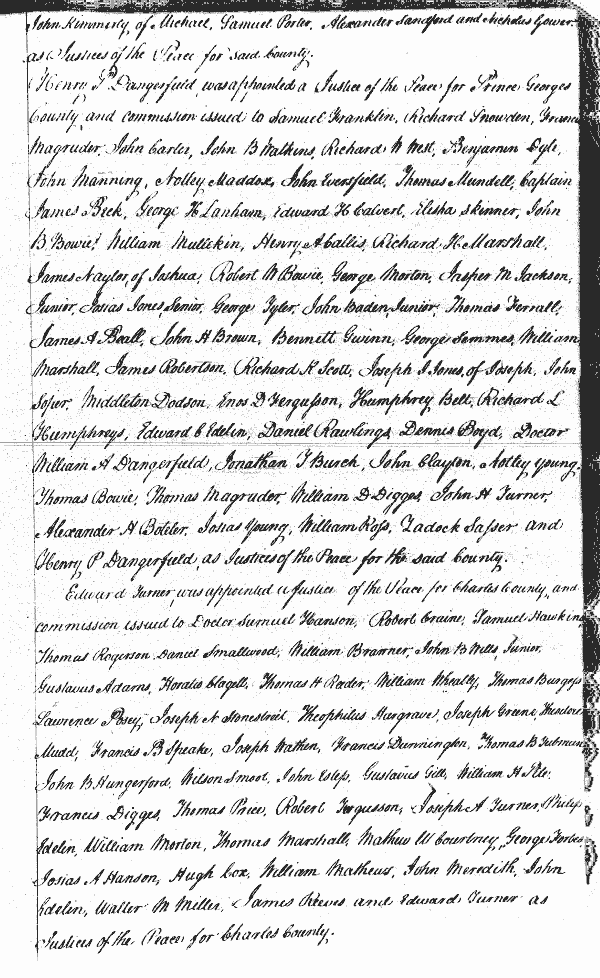 John Kimmerly, of Michael, Samuel Porter, Alexander Sandford and Nicholas Gower
as Justices of the Peace for said County.
Henry P Dangerfield, was appointed a Justice of the Peace for Prince Georges
County, and commission issued to Samuel Franklin, Richard Snowden, Francis
Magruder, John Carter, John B Watkins, Richard W West, Benjamin Lyle,
John Manning, Notley Maddox, John Eversfield, Thomas Mundell, Captain
James Beek, George H Lanham, Edward H Calvert, Elisha Skinner, John
B. Bowie, William Mullikin, Henry A Callis, Richard H. Marshall,
James Naylor, of Joshua, Robert W Bowie, George Morton, Jasper M Jackson,
Junior, Josias Jones, Senior, George Tyler, John Baden, Junior, Thomas Ferrall,
James A Beall, John H Brown, Bennett Gwinn, George Semmes, William
Marshall, James Robertson, Richard K Scott, Joseph J Jones, of Joseph, John
Soper, Middleton Dodson, Enos D Fergusson, Humphrey Belt, Richard L
Humphreys, Edward C Edelin, Daniel Rawlings, Dennis Boyd, Doctor
William A Dangerfield, Jonathan T Burch, John Clayton, Notley Young,
Thomas Bowie, Thomas Magruder, William D Digges, John H Turner,
Alexander H Boteler, Josias Young, William Ross, Zadock Sasser and
Henry P Dangerfield, as Justices of the Peace for the said County.
Edward Turner, was appointed a Justice of the Peace for Charles County, and
commission issued to Doctor Samuel Hanson, Robert Craine, Samuel Hawkins
Thomas Rogerson, Daniel Smallwood, William Brawner, John B Wills, Junior,
Gustavus Adams, Horatio Clagett, Thomas H Reeder, William Wheatly, Thomas Burgess
Lawrence Posey, Joseph N Stonestreet, Theophilus Hargrave, Joseph Greene, Theodore
Mudd, Francis B Speake, Joseph Wathen, Francis Dunnington, Thomas B Tubman
John B Hungerford, Wilson Smoot, John Estep, Gustavus Gill, William H
Francis Digges, Thomas Price, Robert Fergusson, Joseph A Turner, Philip
Edelin, William Morton, Thomas Marshall, Mathew W Courtney, George Forbes
Josias A Hanson, Hugh Cox, William Mathews, John Meredith, John
Edelin, Walter M Miller, James Reeves and Edward Turner as
Justices of the Peace for Charles County.